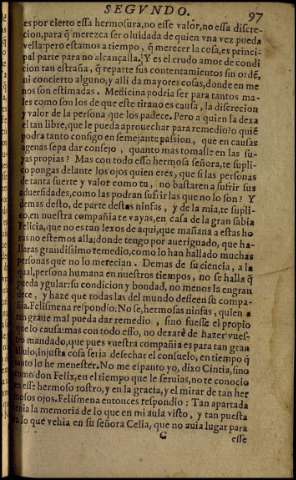 SEGVNDO. 97
es por cierto essa hermosura, no esse valor, no essa discre-
cion, para q̃ merezca ser oluidada de quien vna vez pueda
vella: pero estamos a tiempo, q̃ merecer la cosa, es princi-
pal parte para no alcançalla. Y es el crudo amor de condi
cion tan estraña, q̃ reparte sus contentamientos sin ordẽ,
ni concierto alguno, y alli da mayores cosas, donde en me
nos son estimadas. Medicina podria ser para tantos ma-
les como son los de que este tirano es causa, la discrecion
y valor de la persona que los padece. Pero a quien la dexa
el tan libre, que le pueda aprouechar para remedio? o quiẽ
podra tanto consigo en semejante passion, que en causas
agenas sepa dar consejo, quanto mas tomalle en las su-
yas propias? Mas con todo esso hermosa señora, te supli-
co pongas delante los ojos quien eres, que si las personas
de tanta suerte y valor como tu, no bastaren a sufrir sus
aduersidades, como las podran sufrir las que no lo son? Y
demas desto, de parte destas ninfas, y de la mia, te supli-
co, en nuestra compañia te vayas, en casa de la gran sabia
Felicia, que no es tan lexos de aqui, que mañana a estas ho
ras no estemos alla; donde tengo por aueriguado, que ha-
llaras grandissimo remedio, como lo han hallado muchas
personas que no lo merecian. Demas de su ciencia, a la
qual, persona humana en nuestros tiempos, no se halla q̃
pueda ygualar: su condicion y bondad, no menos la engran
dece, y haze que todas las del mundo desseen su compa-
ñia. Felismena respondio: No se, hermosas ninfas, quien a
tan graue mal pueda dar remedio, sino fuesse el propio
que lo causa: mas con todo esso, no dexarè de hazer vues-
tro mandado, que pues vuestra compañia es para tan gran
titulo, injusta cosa seria desechar el consuelo, en tiempo q̃
tanto lo he menester. No me espanto yo, dixo Cintia, sino
como don Felix, en el tiempo que le seruias, no te conocio
en esse hermoso rostro, y en la gracia, y el mirar de tan her
mosos ojos. Felismena entonces respondio: Tan apartada
tenia la memoria de lo que en mi auia visto, y tan puesta
en lo que vehia en su señora Celia, que no auia lugar para
G esse